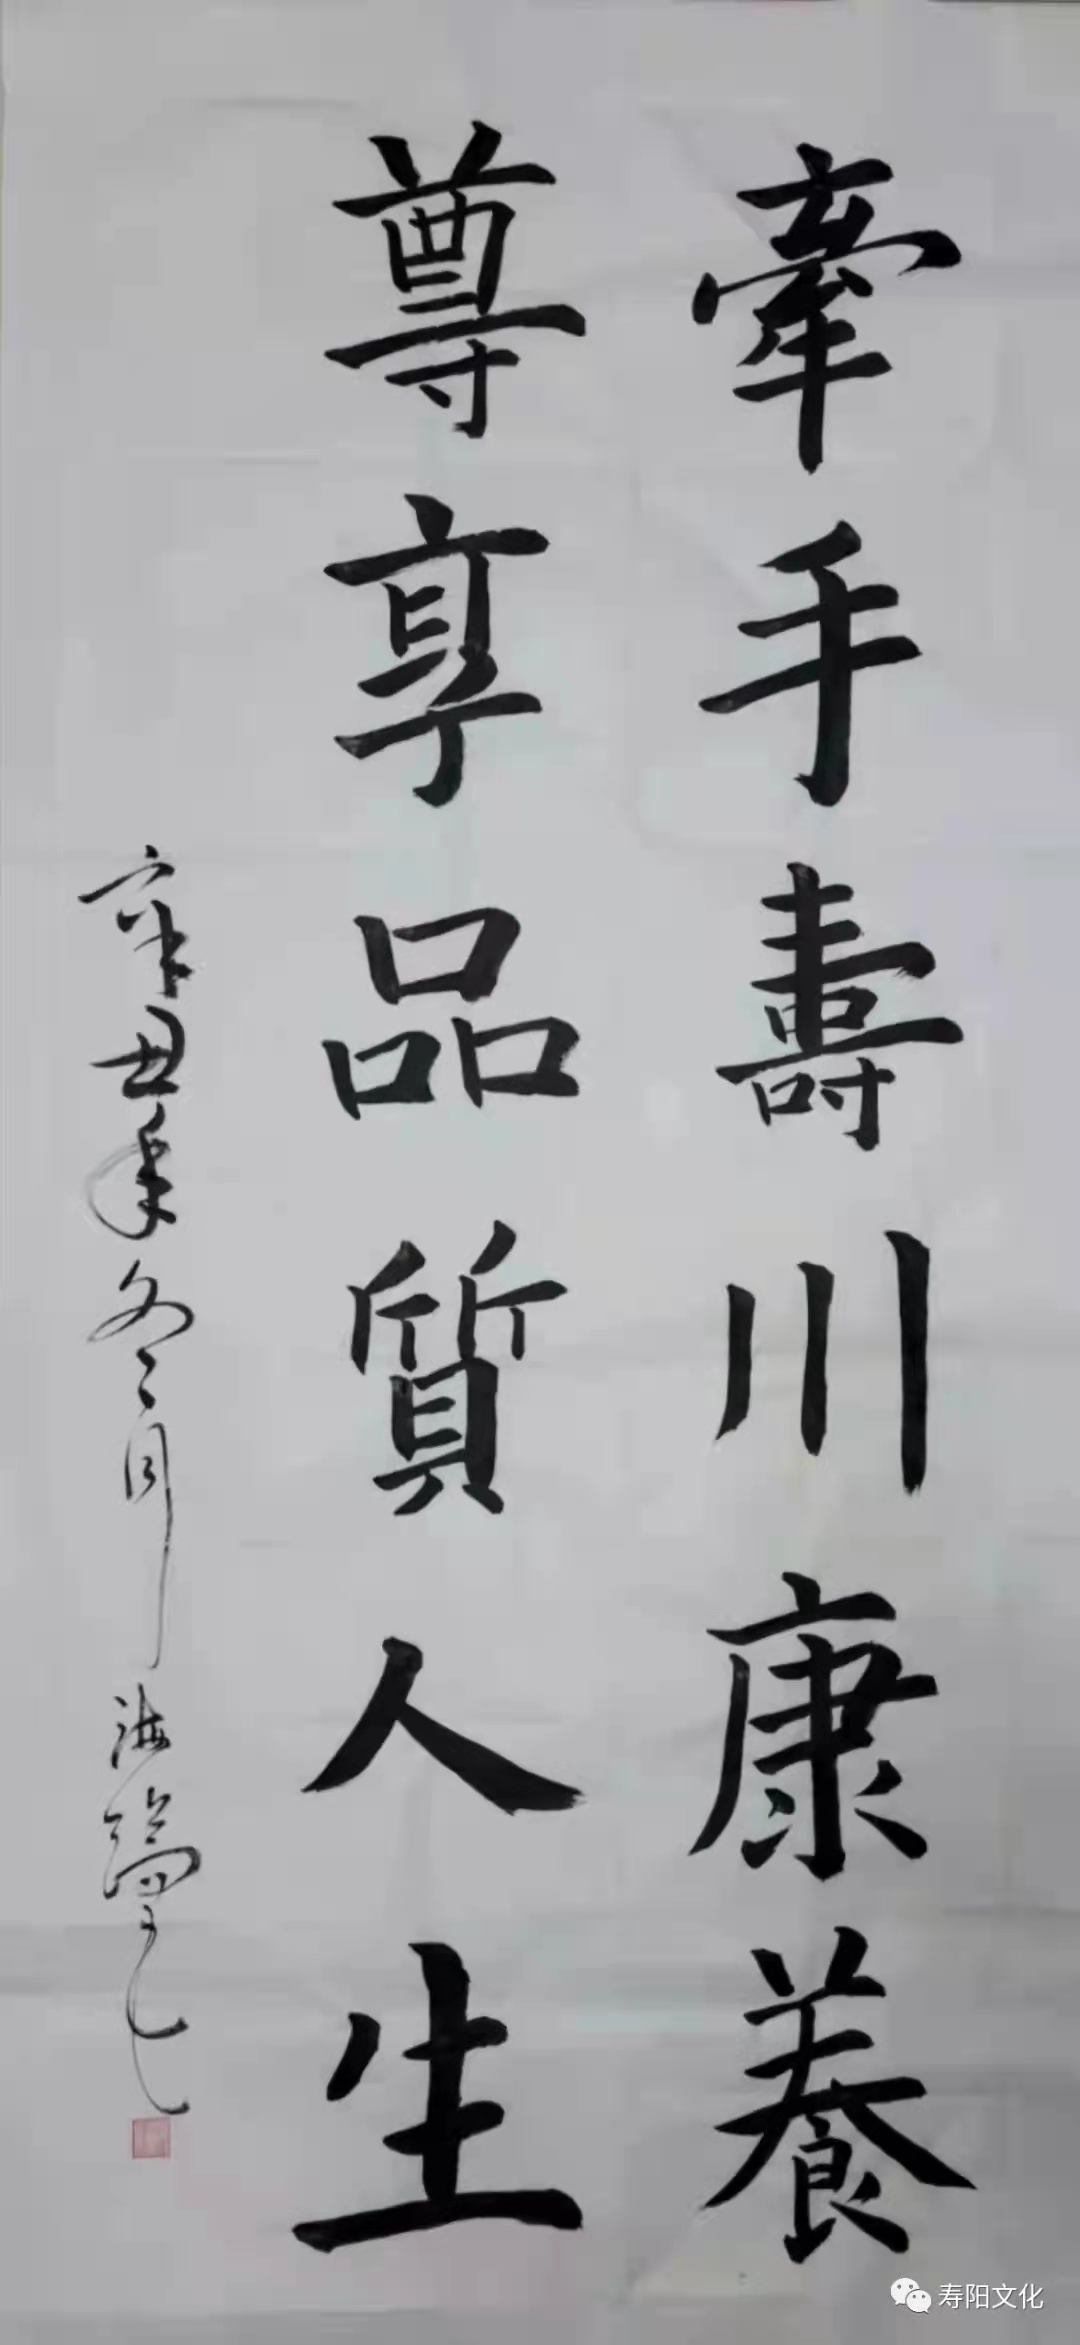 牽手壽川康養
尊享品質人生
辛丑年冬月海
寿阳文化